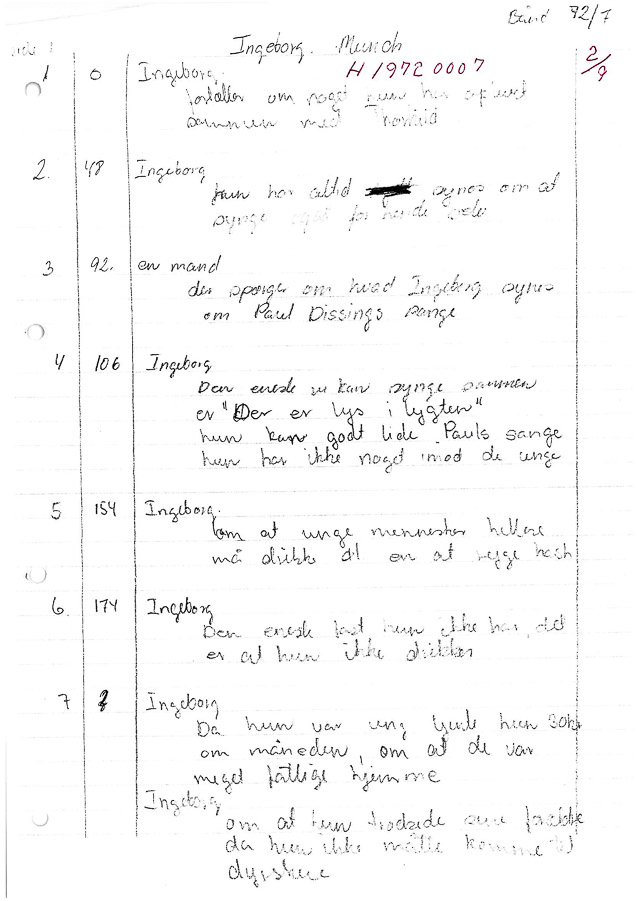 Bånd 72/7
side 1
Ingeborg. Munch
H 1972 0007
2/9
1 0 Ingeborg.
fortæller om noget hun har oplevet
sammen med
2. 48 Ingeborg
hun har altid synes om at
synge
3 92. en mand
der spørger om hvad Ingeborg synes
om Paul Dissings sange
4 106 Ingeborg
Den eneste vi kan synge sammen
er "Der er lys i lygten"
hun kan godt lide Pauls sange
hun har ikke noget imod de unge
5 154 Ingeborg.
om at unge mennesker hellere
må drikke øl en at ryge hash
6. 174 Ingeborg
Den eneste last hun ikke har, det
er at hun ikke drikker
7 Ingeborg
Da hun var ung tjente hun 30kr
om måneden, om at de var
meget fattige hjemme
Ingeborg
om at hun trodsede sine forældre
da hun ikke måtte komme til
dyrskue